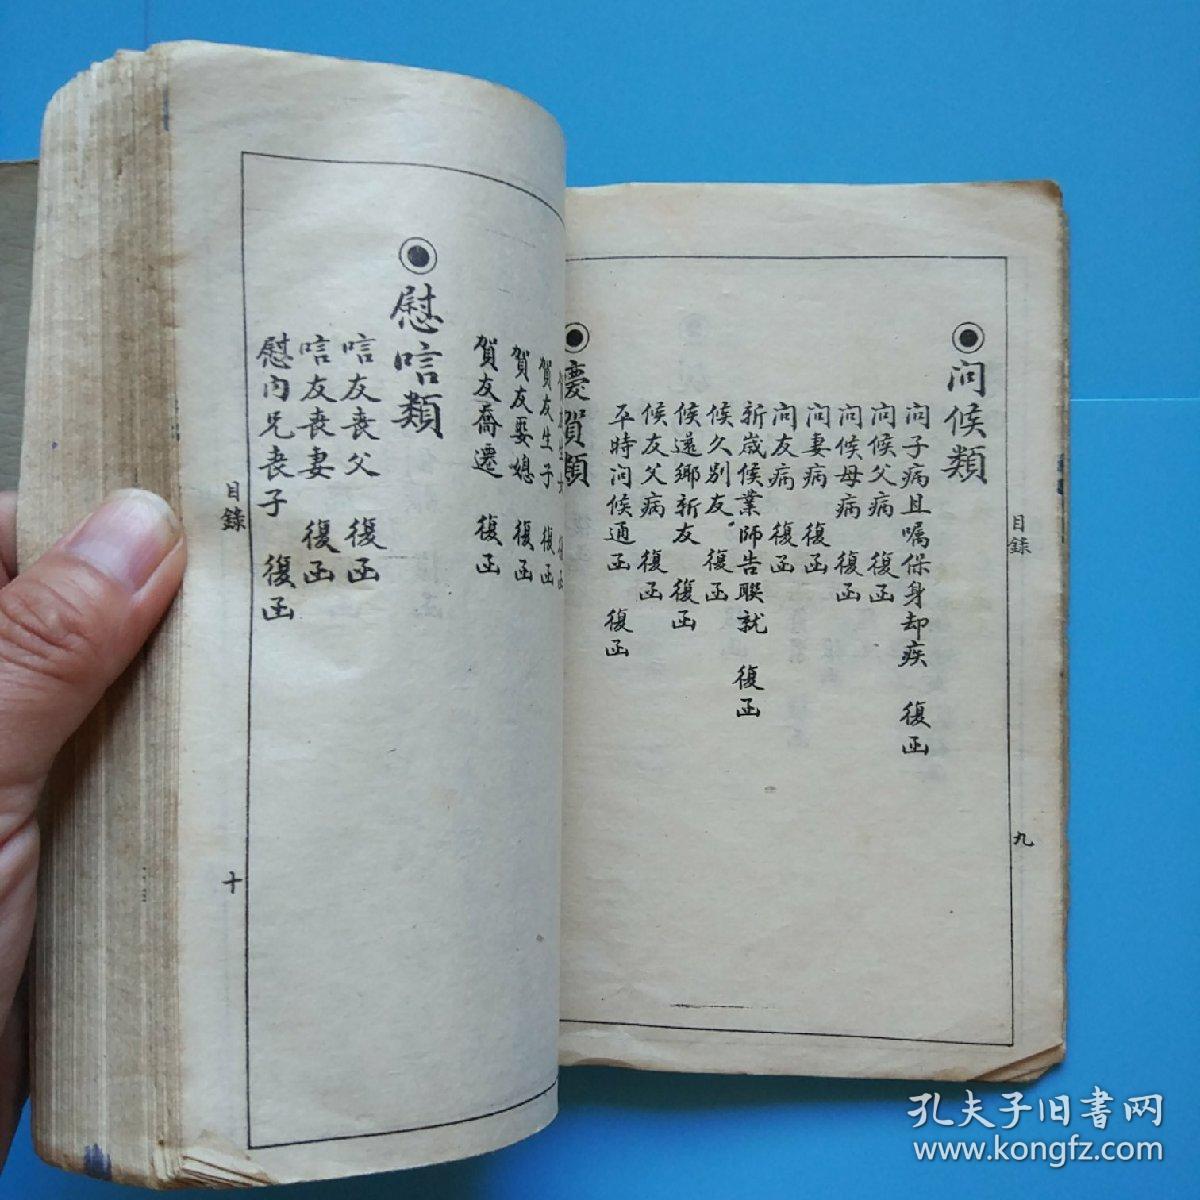 目錄
九
問候類
問子病且囑保身却疾 復函
問候父病 復函
問候母病 復函
問妻病 復函
問友病 復函
新歲候業師告聯就 復函
候久別友 復函
候遠鄉新友 復函
候友父病 復函
平時問候通函 復函
慶賀類
賀友生子 復函
賀友娶媳 復函
賀友喬遷 復函
慰唁類
唁友喪父 復函
唁友喪妻 復函
慰內兄喪子 復函
目錄
十
孔夫子旧書网
www.kongfz.com